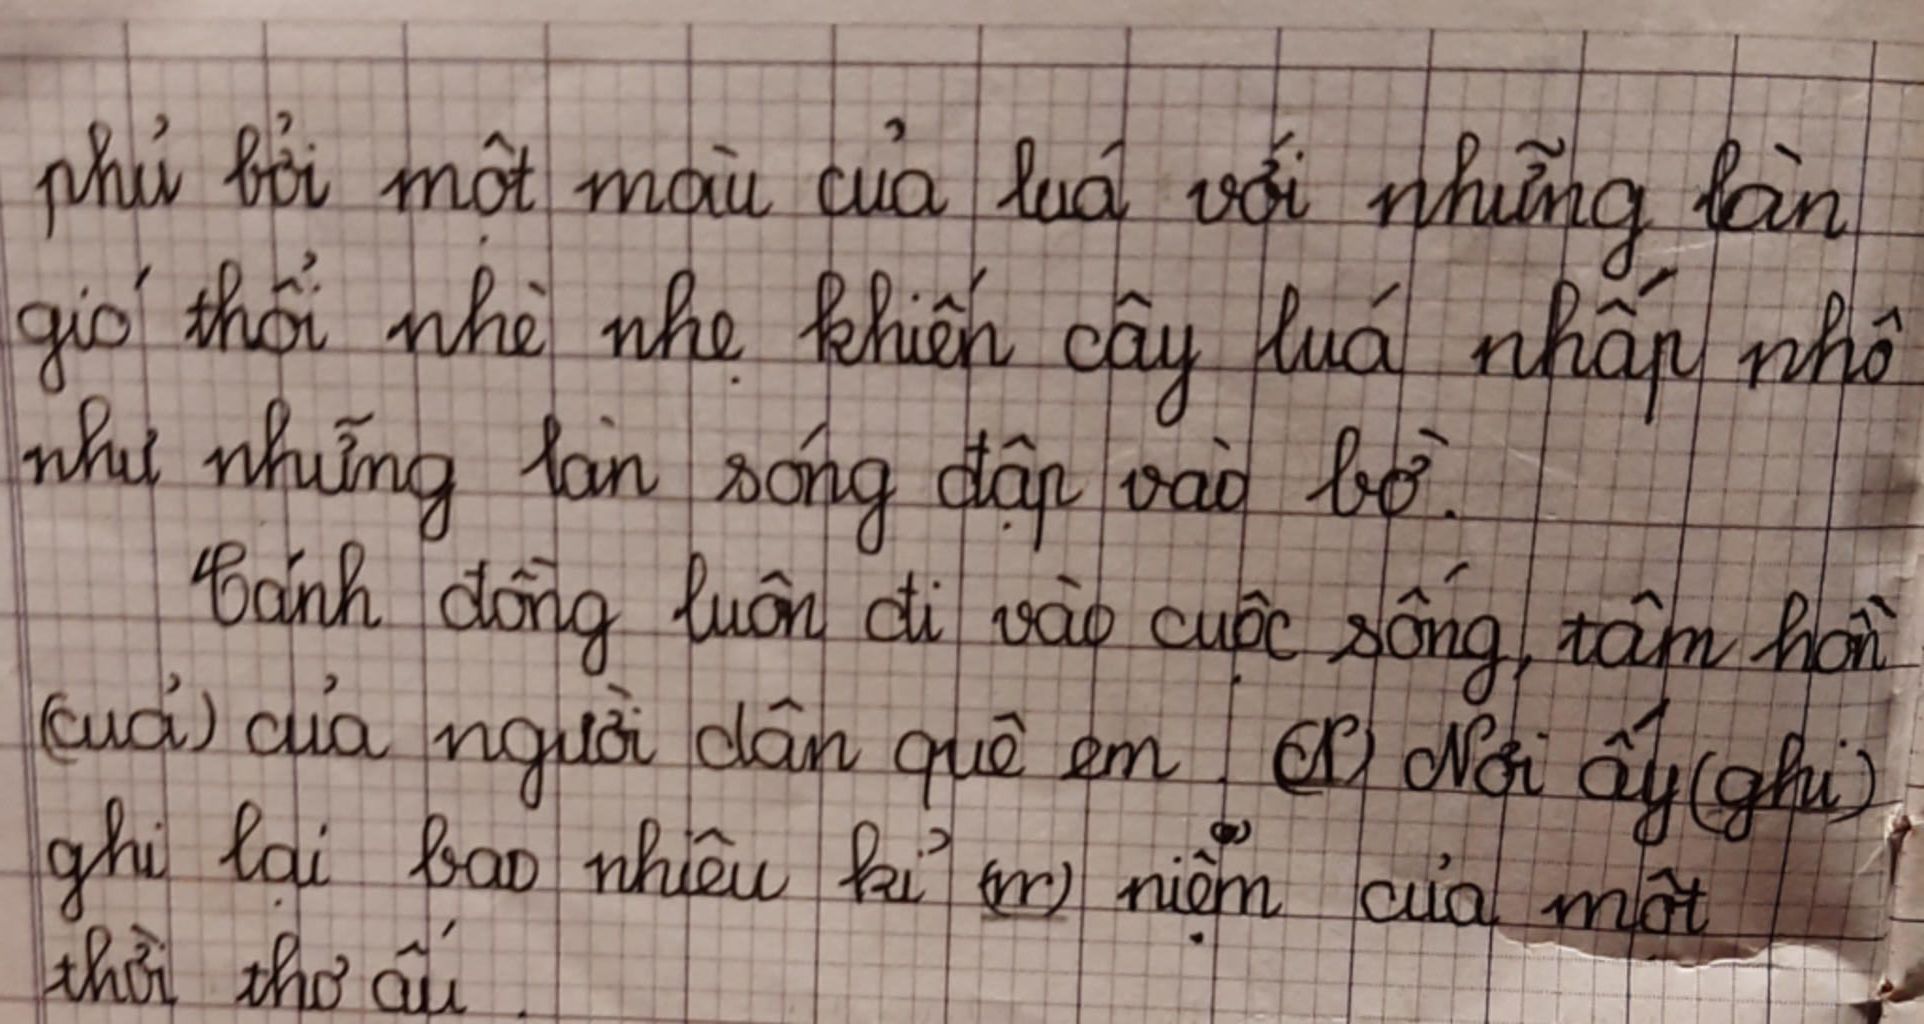 phủ bởi một màu của luá với những làn
gió thổi nhè nhẹ khiến cây luá nhấp nhô
như những làn sóng đập vào bờ.
Cánh đồng luôn đi vào cuộc sống, tâm hồn
(cuả) của người dân quê em. (N) Nơi ấy (ghi)
ghi lại bao nhiêu kỉ (m) niệm của một
thời thơ ấu.